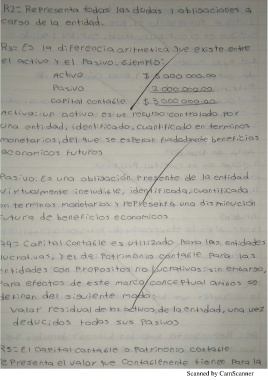 R2= Representa todas las dudas y obligaciones a
cargo de la entidad.
R3= Es la diferencia aritmetica que existe entre
el activo y el Pasivo. ejemplo:
Activo $ 5 000 000.00
Pasivo 2 000 000.00
capital contable $ 3 000 000.00
Activo: un activo es un recurso controlado por
una entidad, identificado, cuantificado en terminos
monetarios, del que se esperan fundadamente beneficios
economicos futuros
Pasivo: Es una obligación presente de la entidad
virtualmente ineludible, identificada, cuantificada
en terminos monetarios y representa una disminución
futura de beneficios economicos
R4= Capital contable es utilizado para las entidades
lucrativas, y el de Patrimonio contable para las
entidades con propositos no lucrativas; sin embargo,
para efectos de este marco conceptual ambos se
definen del siguiente modo:
Valor residual de los activos de la entidad, una vez
deducidos todos sus pasivos
R5= El capital contable o Patrimonio contable
representa el valor que contablemente tienen para la
Scanned by CamScanner